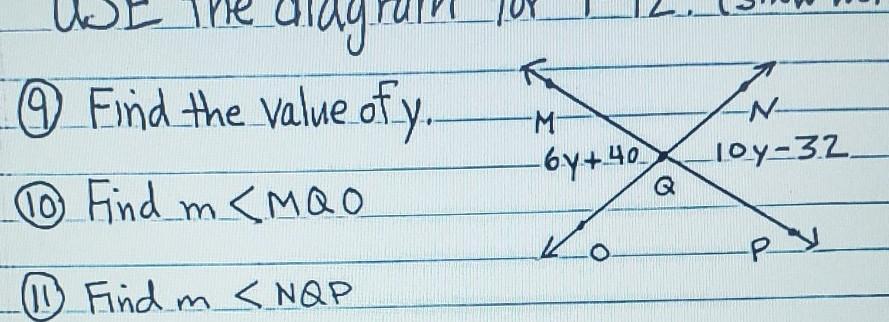 USE The diagram for
⑨ Find the value of y.
M
N
6y+40
10y-32
Q
⑩ Find m <MQO
O
P
⑪ Find m <NQP